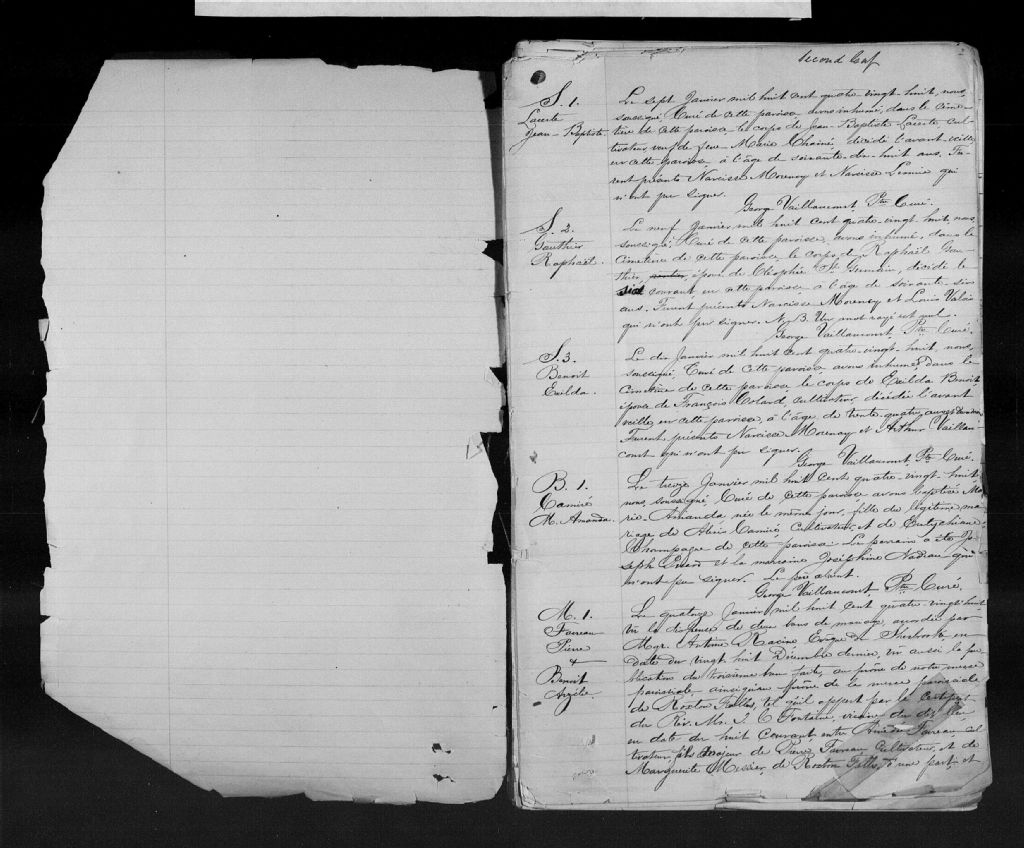 second leaf
S. 1.
Lacerte
Jean-Baptiste
Le sept Janvier mil huit cent quatre-vingt-huit, nous,
soussigné, Curé de cette paroisse avons inhumé, dans le cime-
tière de cette paroisse le corps de Jean-Baptiste Lacerte cul-
tivateur, veuf de feue Marie Chainé, décédé l'avant-veille
en cette paroisse, à l'âge de soixante-dix-huit ans. Fu-
rent présents Narcisse Morency et Narcisse qui
n'ont pu signer.
George Vaillancourt Ptre Curé.
S. 2.
Gauthier
Raphaël.
Le neuf Janvier mil huit cent quatre-vingt huit, nous
soussigné, Curé de cette paroisse, avons inhumé, dans le
cimetière de cette paroisse, le corps de Raphaël Gau
thier, époux de Cléophée St. Germain, décédé le
six courant, en cette paroisse à l'âge de soixante-six
ans. Furent présents Narcisse Morency et Louis Valois
qui n'ont pu signer. N. B. Un mot rayé est nul.
George Vaillancourt, Ptre Curé.
S. 3.
Benoit
Exilda.
Le dix Janvier mil huit cent quatre-vingt-huit, nous,
soussigné, Curé de cette paroisse avons inhumé, dans le
cimetière de cette paroisse, le corps de Exilda Benoit
épouse de François Colard, cultivateur, décédée l'avant
veille, en cette paroisse, à l'âge de trente-quatre
Furent présents Narcisse Morency et Arthur Vaillan-
court qui n'ont pu signer.
George Vaillancourt, Ptre Curé.
B. 1.
Camiré
M. Amanda.
Le treize Janvier mil huit cent quatre-vingt-huit,
nous, soussigné Curé de cette paroisse avons baptisé Ma
rie-Amanda née le même jour, fille du légitime ma-
riage de Alexis Camiré, cultivateur, et de
Champagne de cette paroisse. Le parrain a été Jo-
seph et la marraine Joséphine Nadeau qui
n'ont pu signer. Le père absent.
George Vaillancourt Ptre Curé.
M. 1.
Favreau
Pierre
+
Benoit
Azélie.
Le quatorze Janvier mil huit cent quatre-vingt-huit
vu la dispense de deux bans de mariage, accordée par
Mgr. Antoine Racine Evêque de Sherbrooke, en
date du vingt huit Décembre dernier, vu aussi la pu-
blication du troisième ban faite, au prône de notre messe
paroissiale ainsi qu'au prône de la messe paroissiale
de Roxton Falls, tel qu'il appert par le certificat
du Rév. Mr. J. C. Fontaine, vicaire du dit lieu
en date du huit Courant, entre Favreau, cul
tivateur, fils majeur de Pierre Favreau Cultivateur, et de
Marguerite Messier, de Roxton Falls, d'une part, et